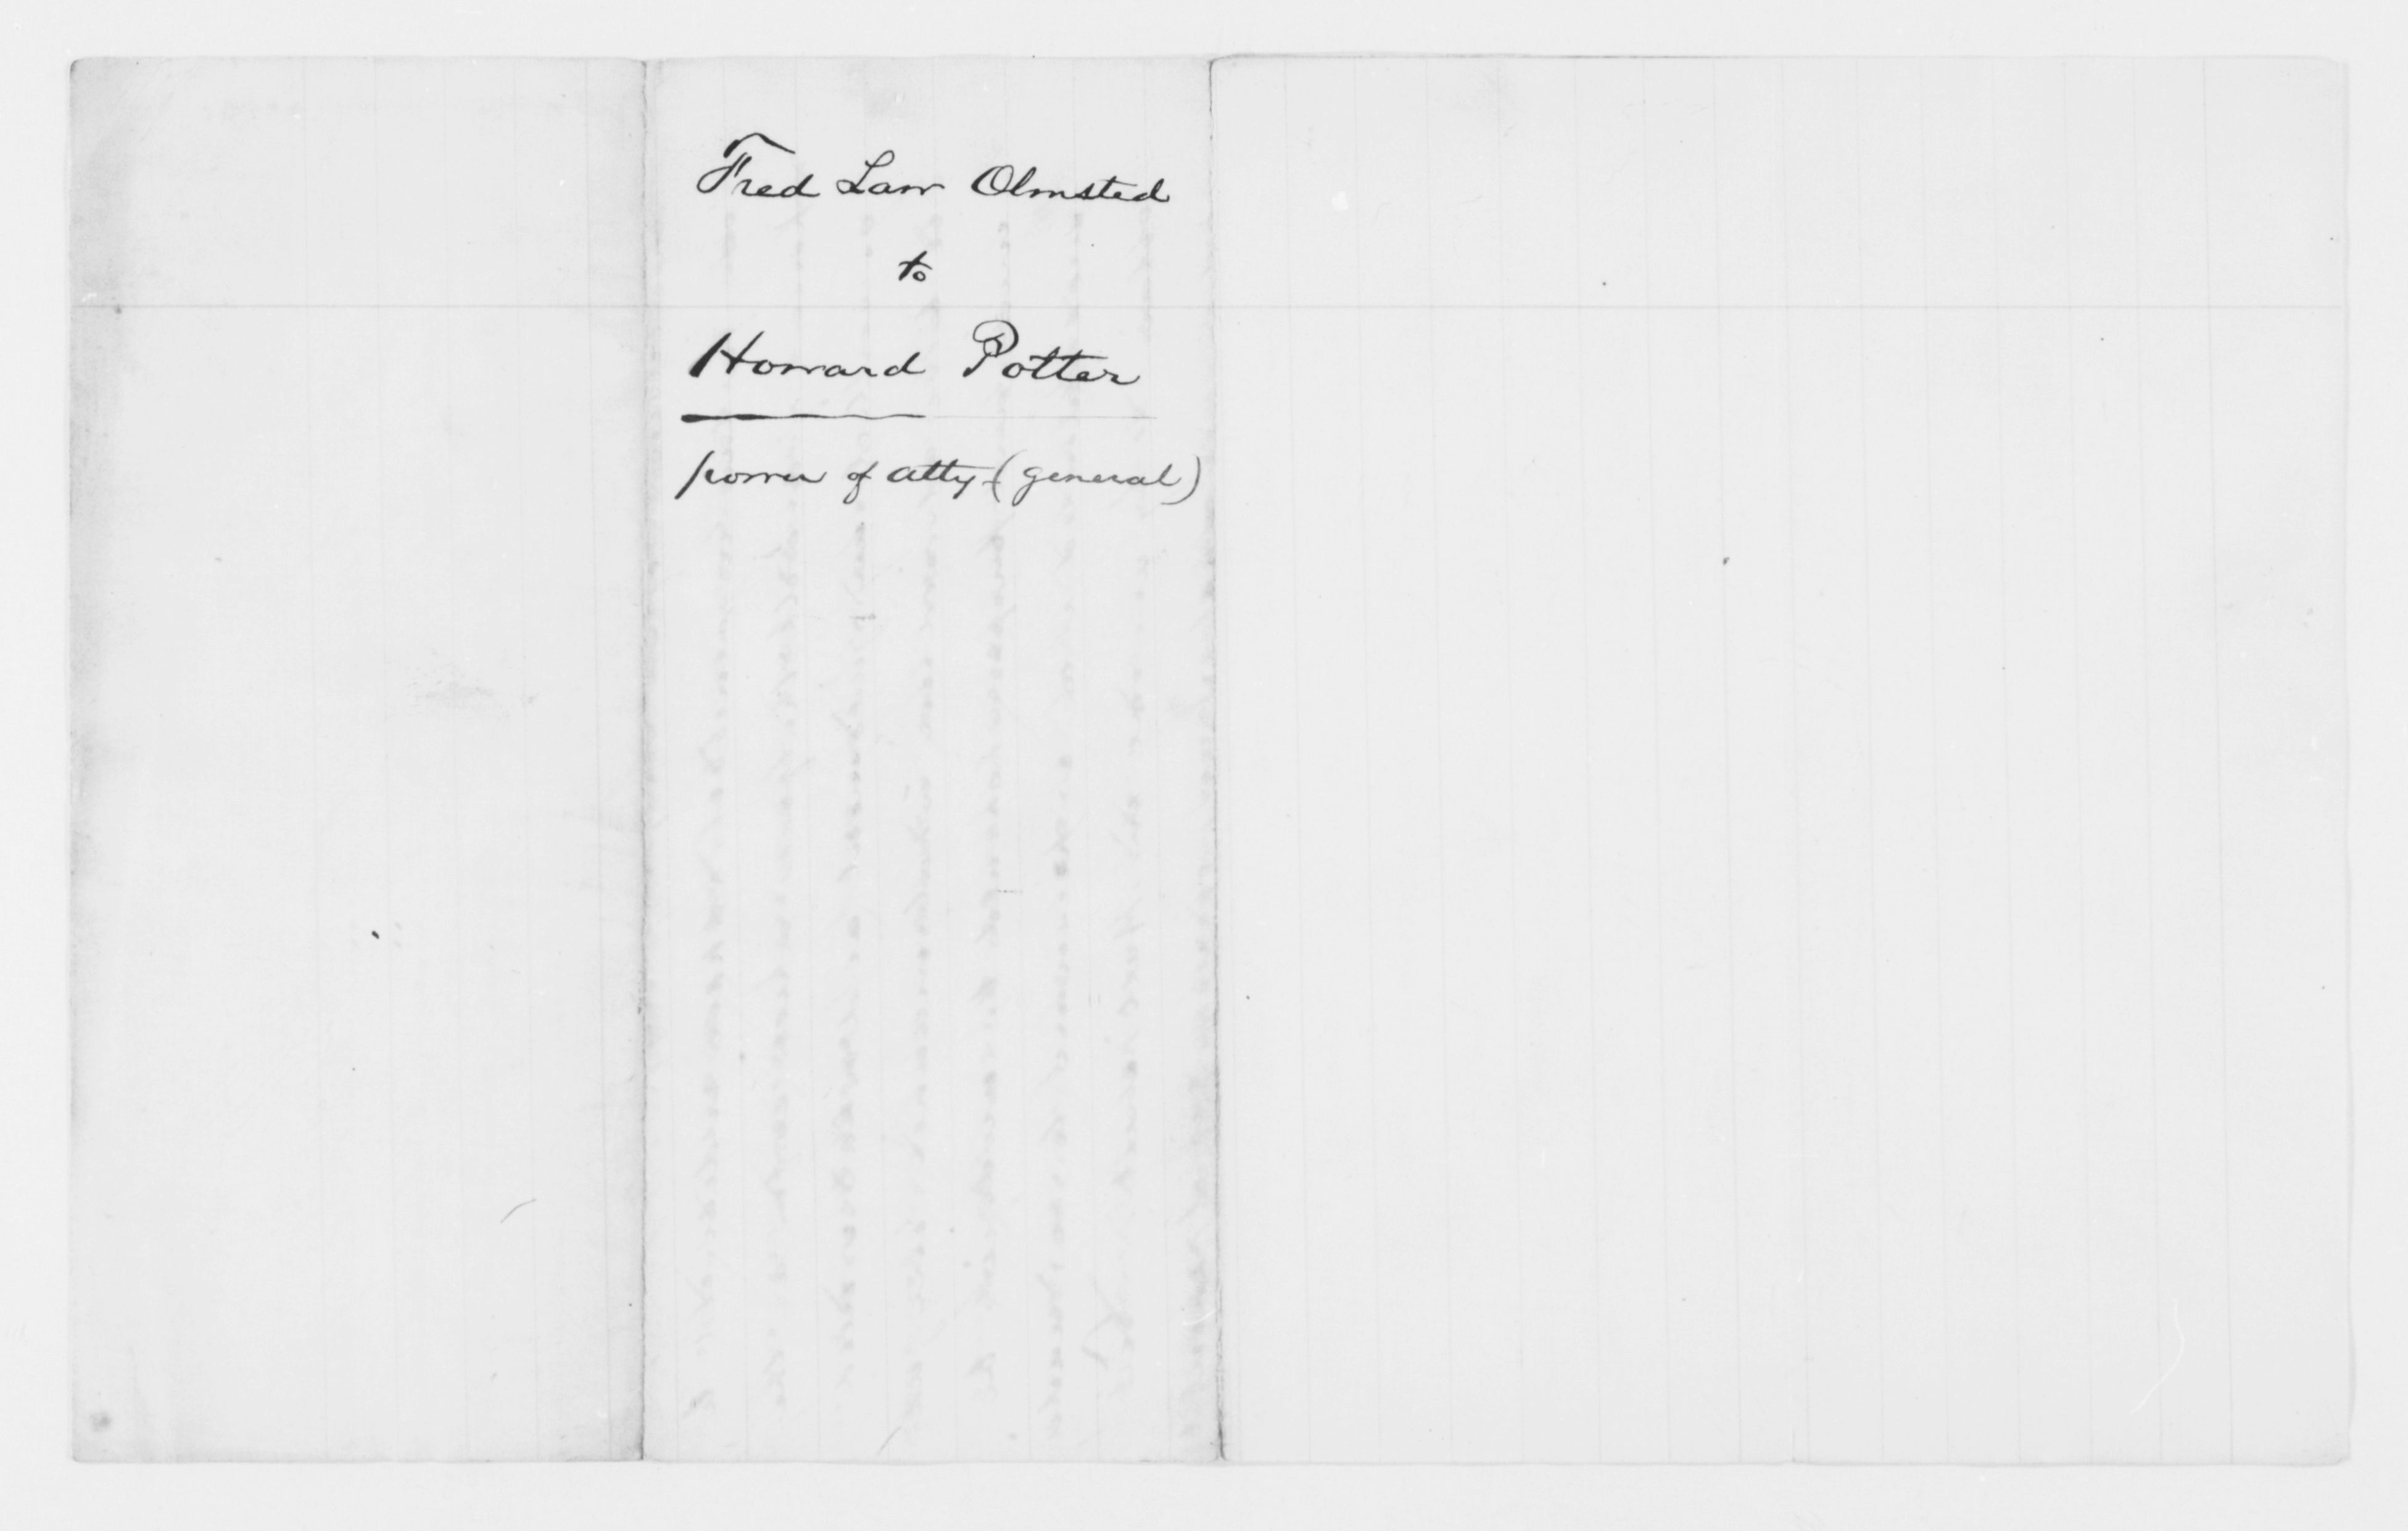 Fred Law Olmsted
to
Howard Potter
power of atty (general)